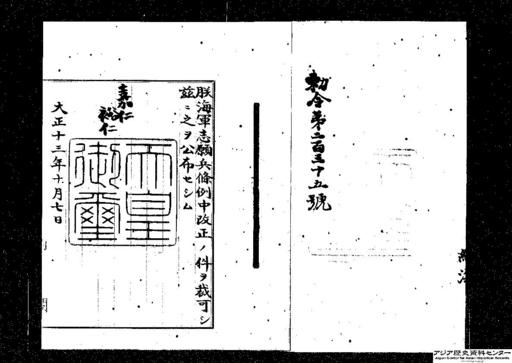 勅令第二百三十五號
朕海軍志願兵條例中改正ノ件ヲ裁可シ
茲ニ之ヲ公布セシム
嘉仁
裕仁
天皇
御璽
大正十三年十月七日
アジア歴史資料センター
Japan Center for Asian Historical Records